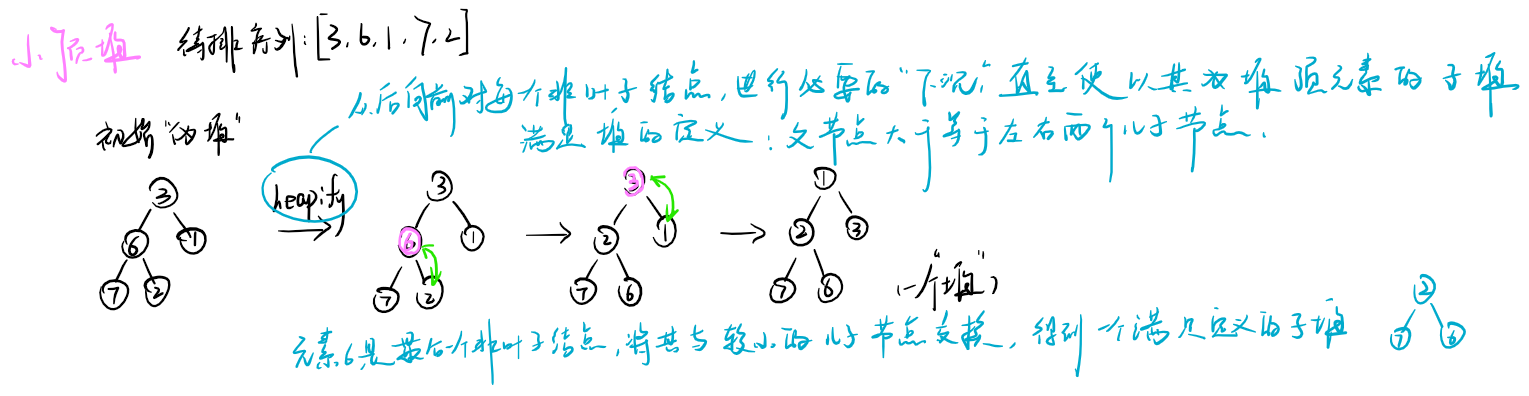 小顶堆 待排序列:[3,6,1,7,2]
从后向前对每个非叶子结点,进行必要的"下沉",直至使以其为堆顶元素的子堆
满足堆的定义:父节点大于等于左右两个儿子节点.
初始"伪堆"
heapify
3 3 3 1
6 1 6 1 2 1 2 3
7 2 7 2 7 6 7 6
(一个"堆")
元素6是最后个非叶子结点,将其与较小的儿子节点交换,得到一个满足定义的子堆
2
7 6